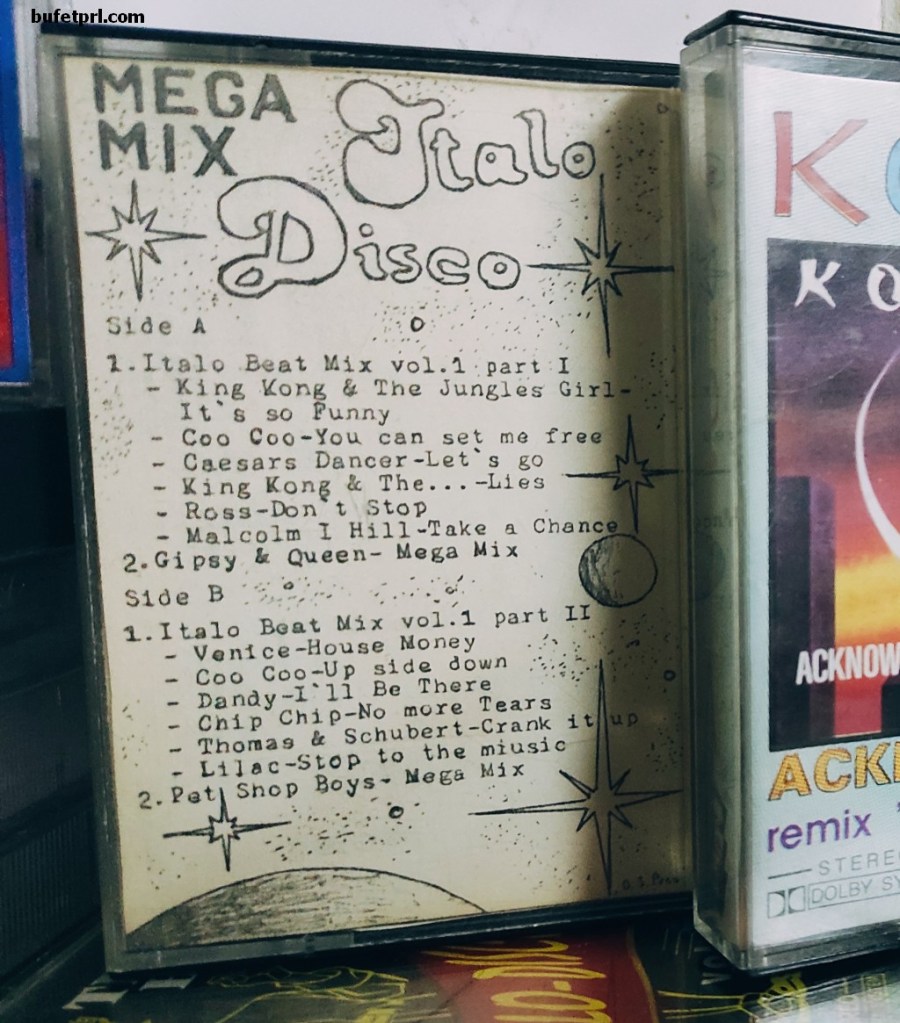 bufetprl.com
MEGA
MIX
Italo
Disco
Side A
1.Italo Beat Mix vol.1 part I
- King Kong & The Jungles Girl-
It`s so Funny
- Coo Coo-You can set me free
- Caesars Dancer-Let`s go
- King Kong & The...-Lies
- Ross-Don`t Stop
- Malcolm I Hill-Take a Chance
2.Gipsy & Queen- Mega Mix
Side B
1.Italo Beat Mix vol.1 part II
- Venice-House Money
- Coo Coo-Up side down
- Dandy-I`ll Be There
- Chip Chip-No more Tears
- Thomas & Schubert-Crank it up
- Lilac-Stop to the miusic
2.Pet Shop Boys- Mega Mix
K
K O
ACKNOW
ACK
remix
STEREO
DOLBY SY